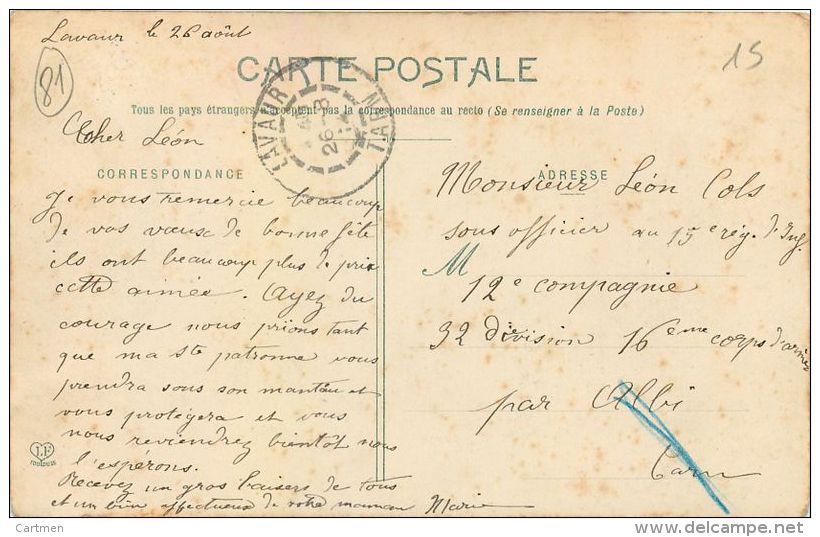 Lavaur le 26 août
15
81
CARTE POSTALE
Tous les pays étrangers n'acceptent pas la correspondance au recto (Se renseigner à la Poste)
LAVAUR TARN
26-8
Cher Léon
CORRESPONDANCE
Je vous remercie beaucoup
de vos vœux de bonne fête
ils ont beaucoup plus de prix
cette année. Ayez du
courage nous prions tant
que ma Ste patronne vous
prendra sous son manteau et
vous protégera et vous
nous reviendrez bientôt nous
l'espérons.
Recevez un gros baisers de tous
et un bien affectueux de votre maman Marie
ADRESSE
Monsieur Léon Cols
sous officier au 15e rég. d'Inf.
M
12e compagnie
32 division 16ème corps d'armée
par Albi
Tarn
LF
TOULOUSE
Cartmen
http://www.delcampe.net